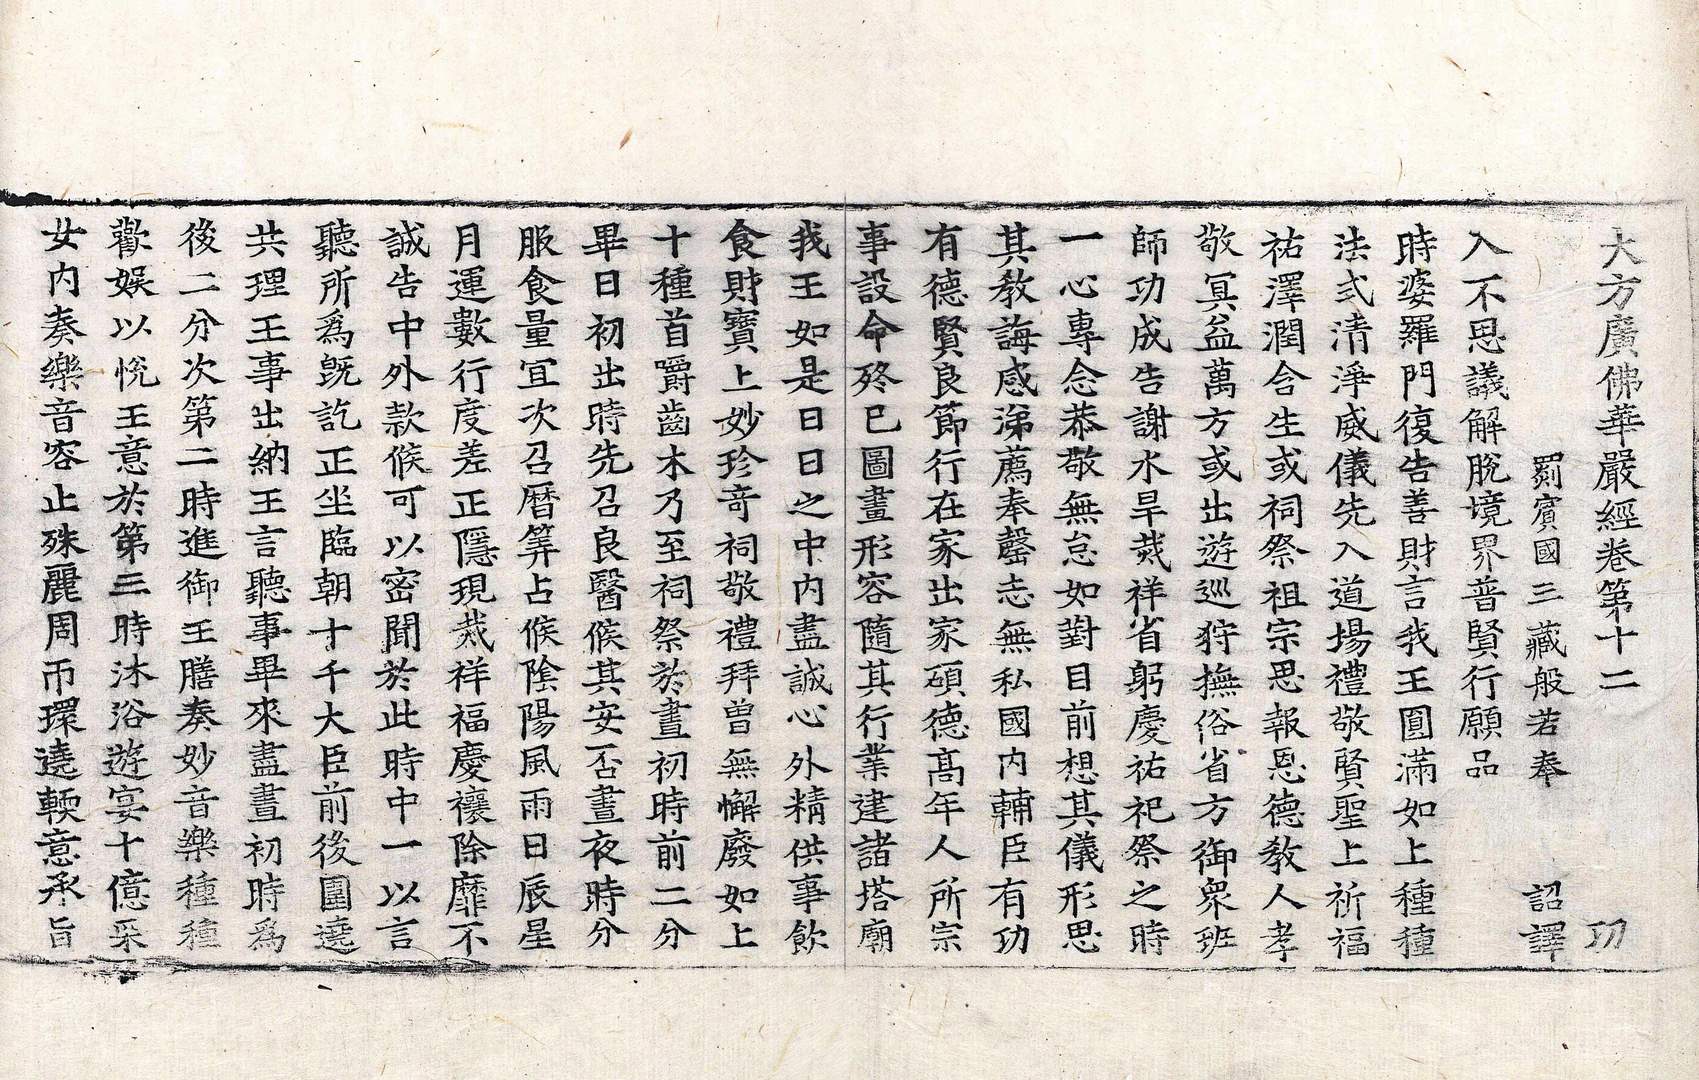 大方廣佛華嚴經卷第十二 功
罽賓國三藏般若奉 詔譯
入不思議解脫境界普賢行願品
時婆羅門復告善財言我王圓滿如上種種
法式清淨威儀先入道場禮敬賢聖上祈福
祐澤潤含生或祠祭祖宗思報恩德教人孝
敬冥益萬方或出遊巡狩撫俗省方御衆班
師功成告謝水旱烖祥省躬慶祐祀祭之時
一心專念恭敬無怠如對目前想其儀形思
其教誨感涕薦奉罄志無私國內輔臣有功
有德賢良節行在家出家碩德髙年人所宗
事設命終已圖畫形容隨其行業建諸塔廟
我王如是日日之中內盡誠心外精供事飮
食財寶上妙珍竒祠敬禮拜曾無懈廢如上
十種首嚼齒木乃至祠祭於晝初時前二分
畢日初出時先召良醫候其安否晝夜時分
服食量宜次召曆筭占候陰陽風雨日辰星
月運數行度差正隱現烖祥福慶禳除靡不
誠告中外款候可以密聞於此時中一以言
聽所爲旣訖正坐臨朝十千大臣前後圍遶
共理王事出納王言聽事畢來盡晝初時爲
後二分次第二時進御王膳奏妙音樂種種
歡娛以悅王意於第三時沐浴遊宴十億采
女內奏樂音容止殊麗周帀環遶輭意承旨